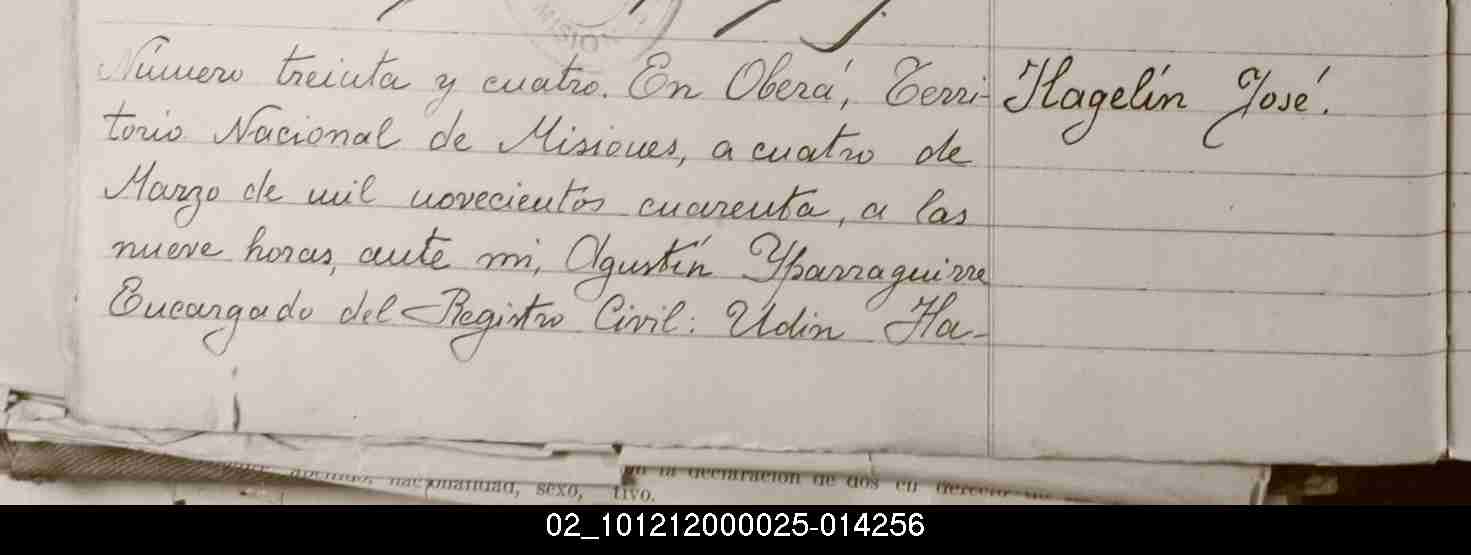 MISION
Número treinta y cuatro. En Oberá, Terri-
Hagelín José.
torio Nacional de Misiones, a cuatro de
Marzo de mil novecientos cuarenta, a las
nueve horas, ante mi, Agustín Yparraguirre
Encargado del Registro Civil: Udin Ha-
nacionalidad, sexo, tivo.
la declaración de dos en
02_101212000025-014256